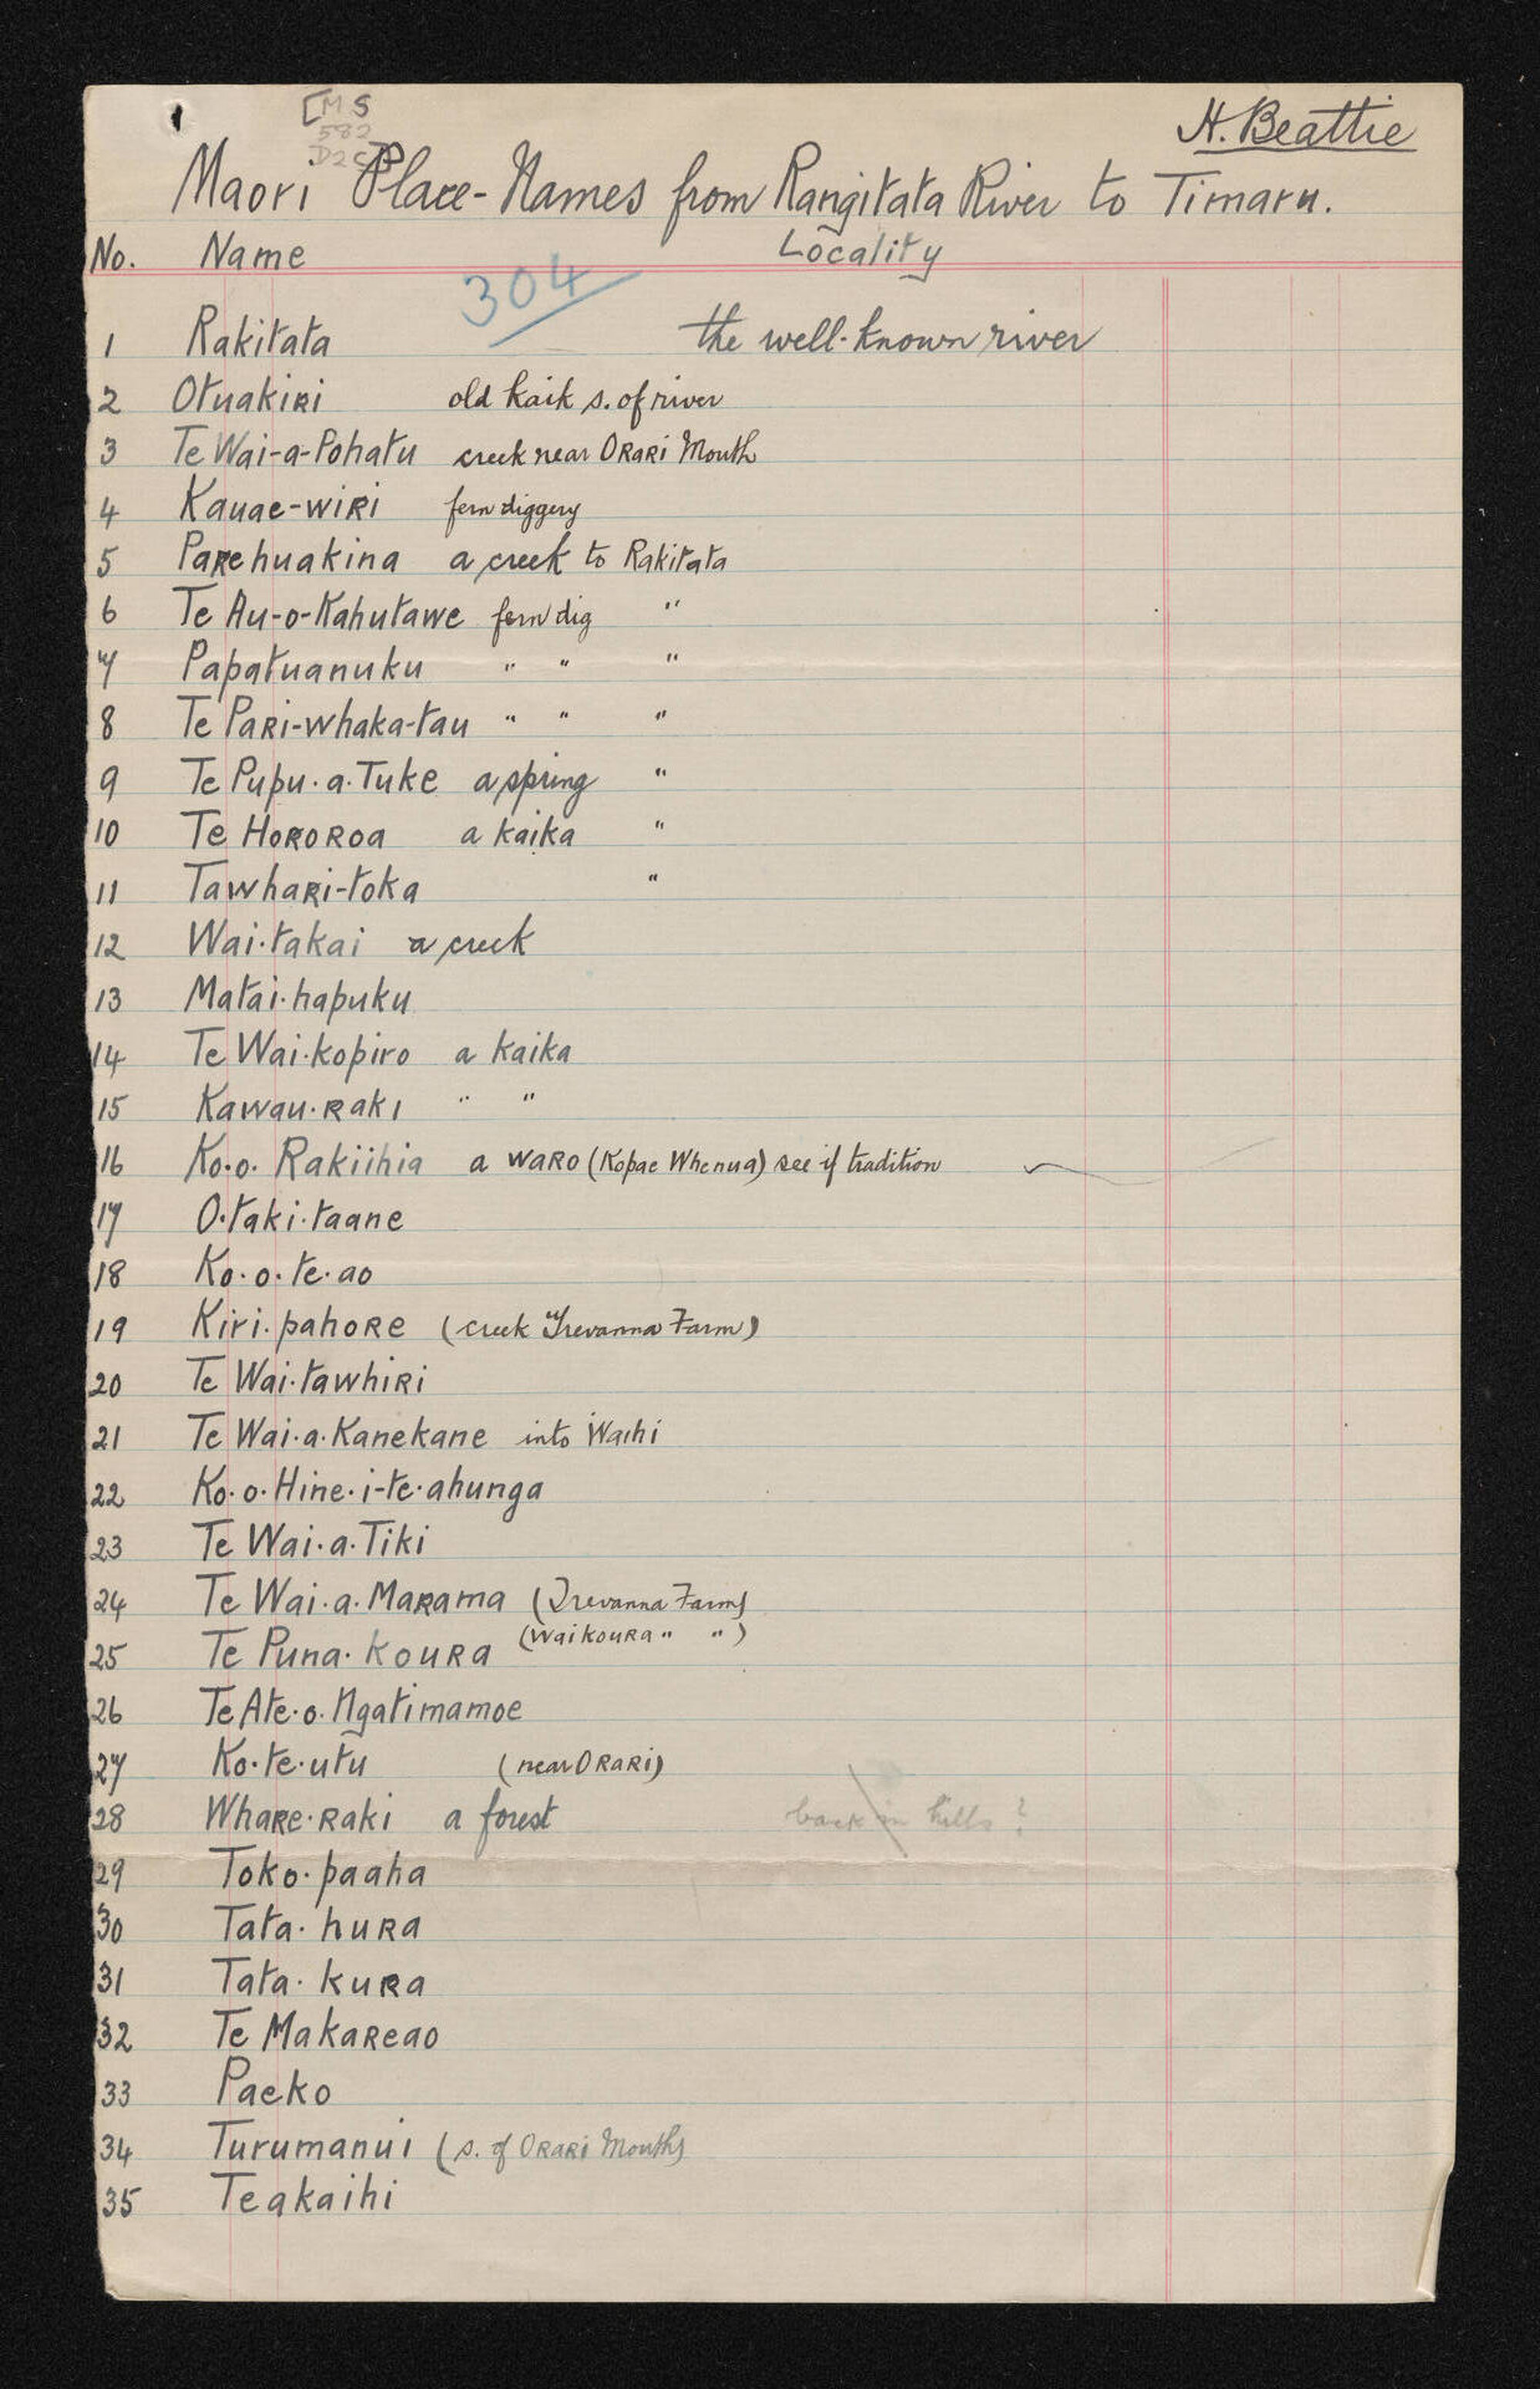 [MS
582
D2C]
H. Beattie
Maori Place-Names from Rangitata River to Timaru.
No. Name Locality
304
1 Rakitata the well-known river
2 Otuakiri old kaik s. of river
3 Te Wai-a-Pohatu creek near Orari Mouth
4 Kauae-wiri fern diggery
5 Parehuakina a creek to Rakitata
6 Te Au-o-Kahutawe fern dig "
7 Papatuanuku " " "
8 Te Pari-whaka-tau " " "
9 Te Pupu.a.Tuke a spring "
10 Te Hororoa a kaika "
11 Tawhari-toka "
12 Wai.takai a creek
13 Matai.hapuku
14 Te Wai.kopiro a kaika
15 Kawau.raki " "
16 Ko.o. Rakiihia a waro (Kopae Whenua) see if tradition
17 O.taki.taane
18 Ko.o.te.ao
19 Kiri.pahore (creek Trevanna Farm)
20 Te Wai.tawhiri
21 Te Wai.a.Kanekane into Waihi
22 Ko.o.Hine.i-te.ahunga
23 Te Wai.a.Tiki
24 Te Wai.a.Marama (Trevanna Farm)
25 Te Puna.koura (Waikoura " ")
26 Te Ate.o.Ngatimamoe
27 Ko.te.utu (near Orari)
28 Whare.raki a forest back in hills?
29 Toko.paaha
30 Tata.hura
31 Tata.kura
32 Te Makareao
33 Paeko
34 Turumanui (s. of Orari Mouth)
35 Teakaihi